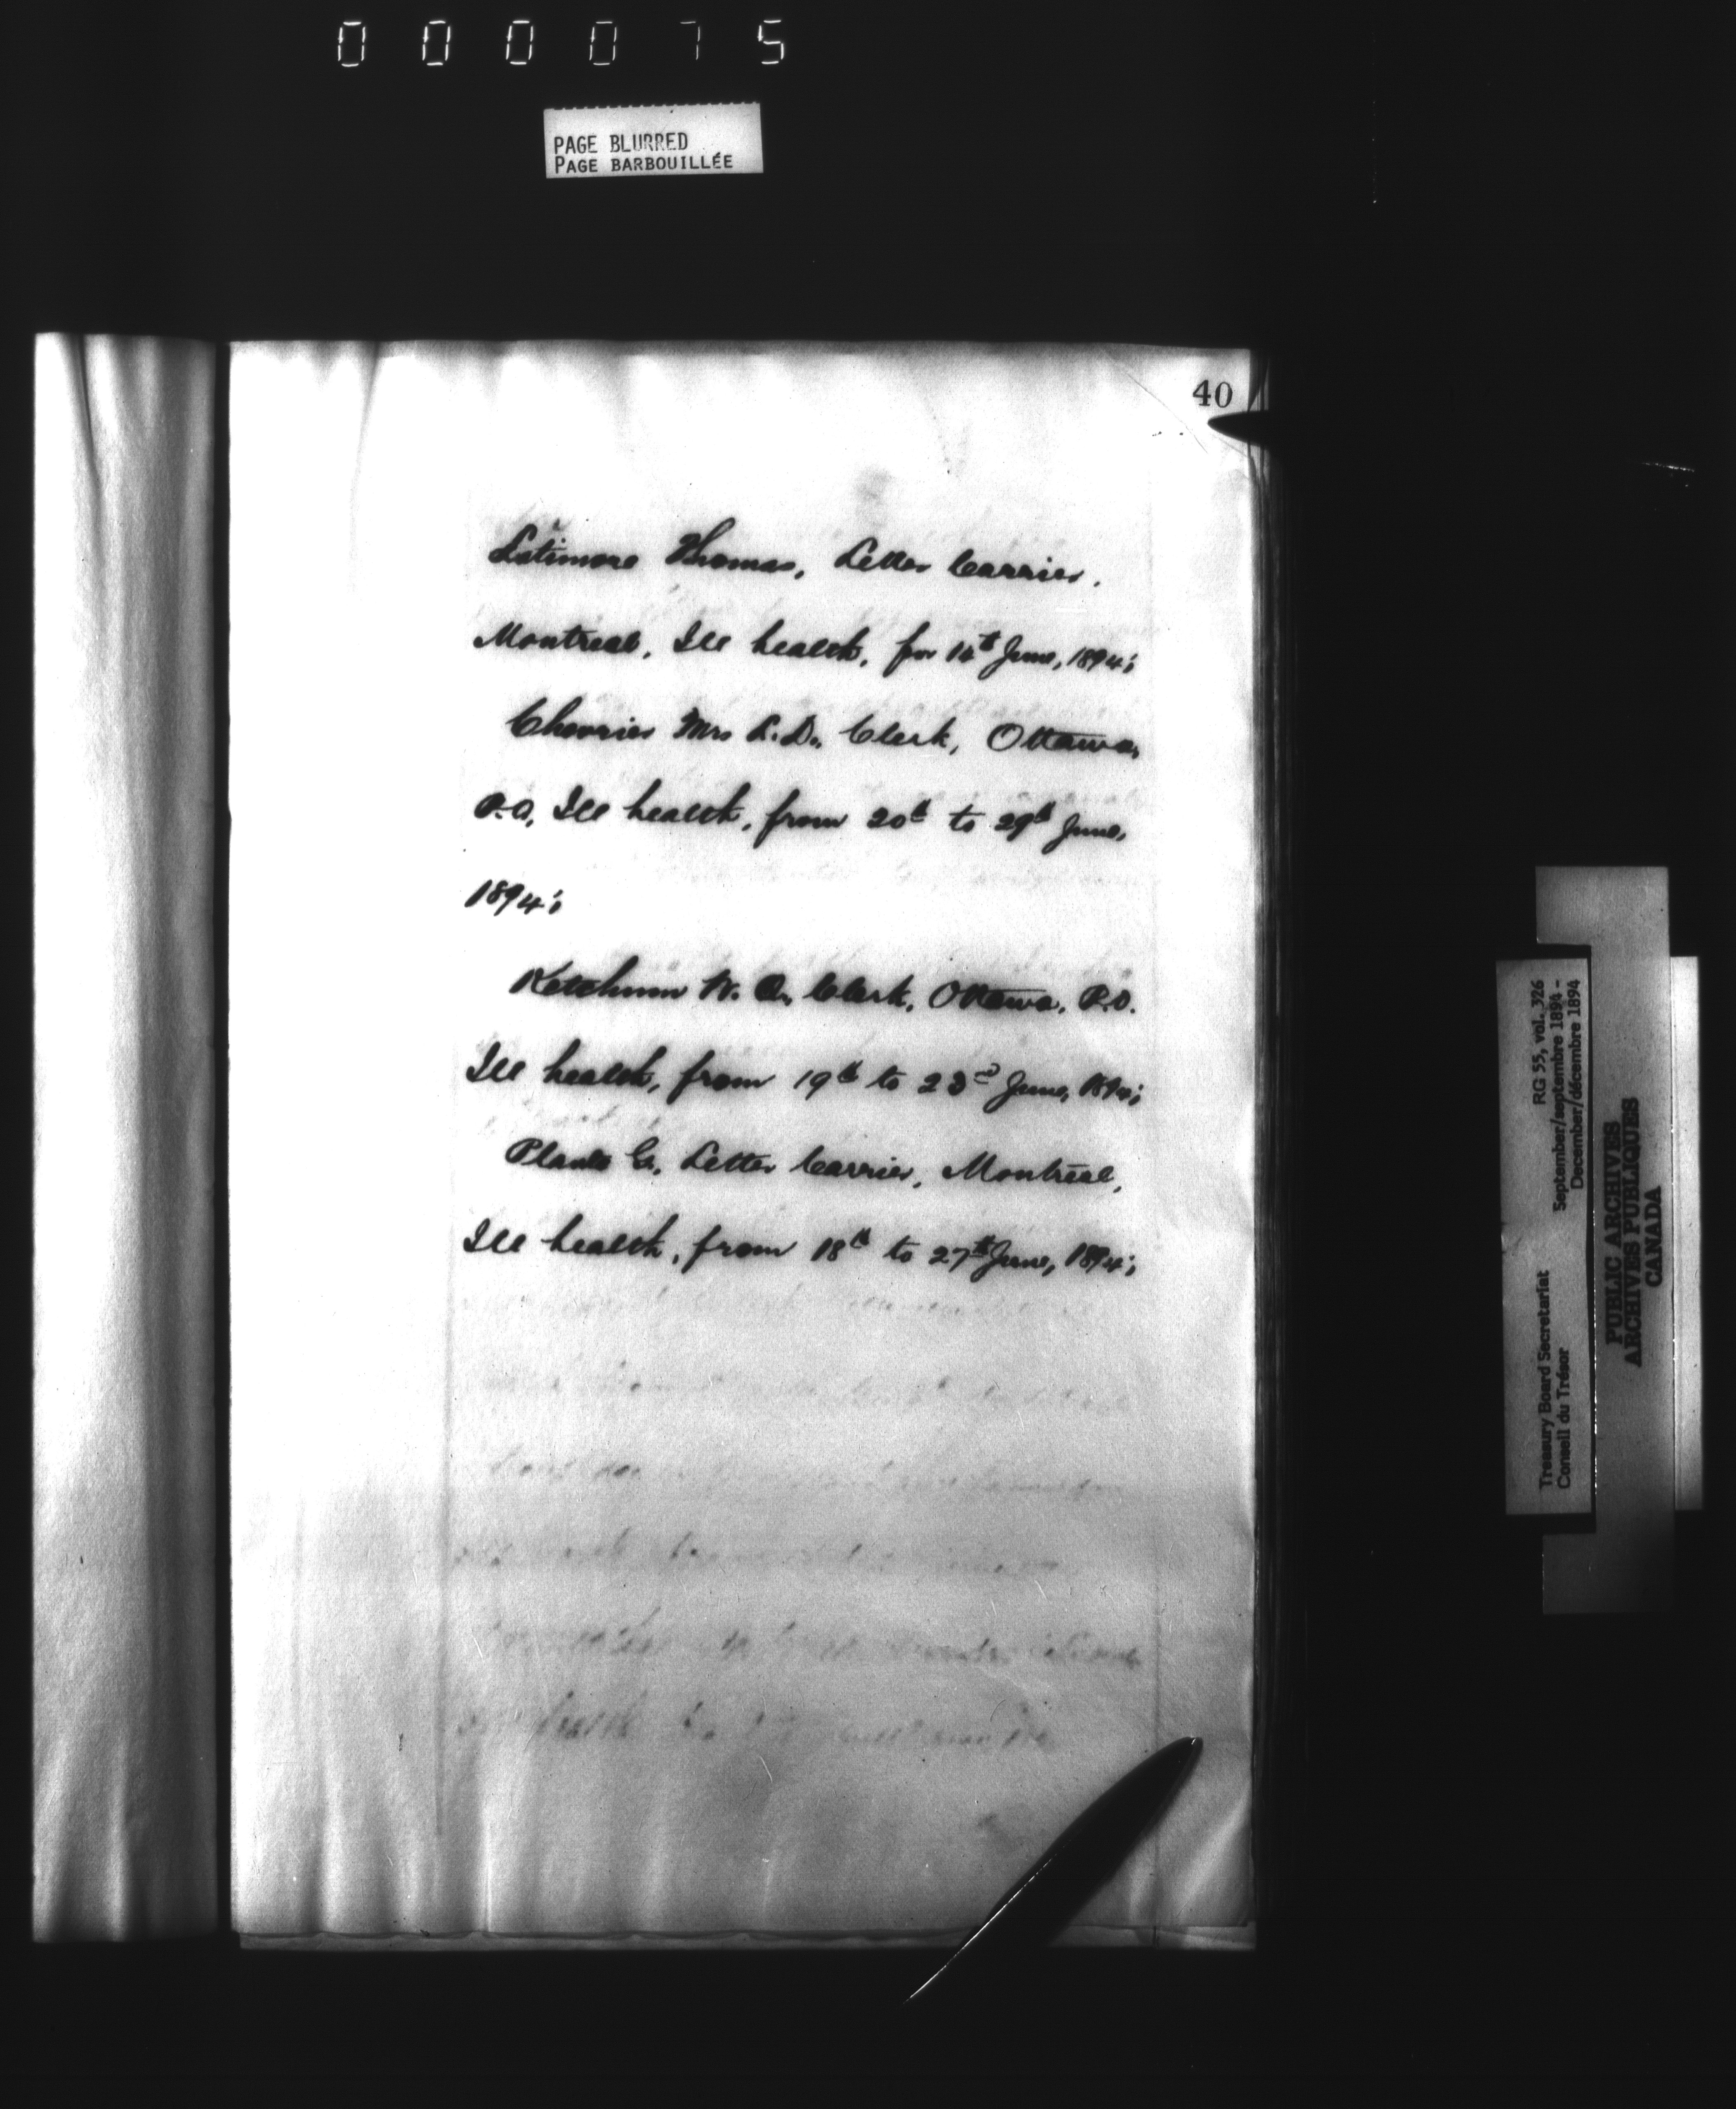 000075
PAGE BLURRED
PAGE BARBOUILLÉE
40
Latimore Thomas, Letter Carrier.
Montreal, Ill health, for 14th June, 1894;
Chevrier Mrs L. D., Clerk, Ottawa,
P.O, Ill health, from 20th to 29th June,
1894;
Ketchum W. Q., Clerk, Ottawa, P.O.
Ill health, from 19th to 23rd June, 1894;
Plante G. Letter Carrier, Montreal,
Ill health, from 18th to 27th June, 1894;
Treasury Board Secretariat RG 55, vol. 326
Conseil du Trésor September/septembre 1894 -
December/décembre 1894
PUBLIC ARCHIVES
ARCHIVES PUBLIQUES
CANADA